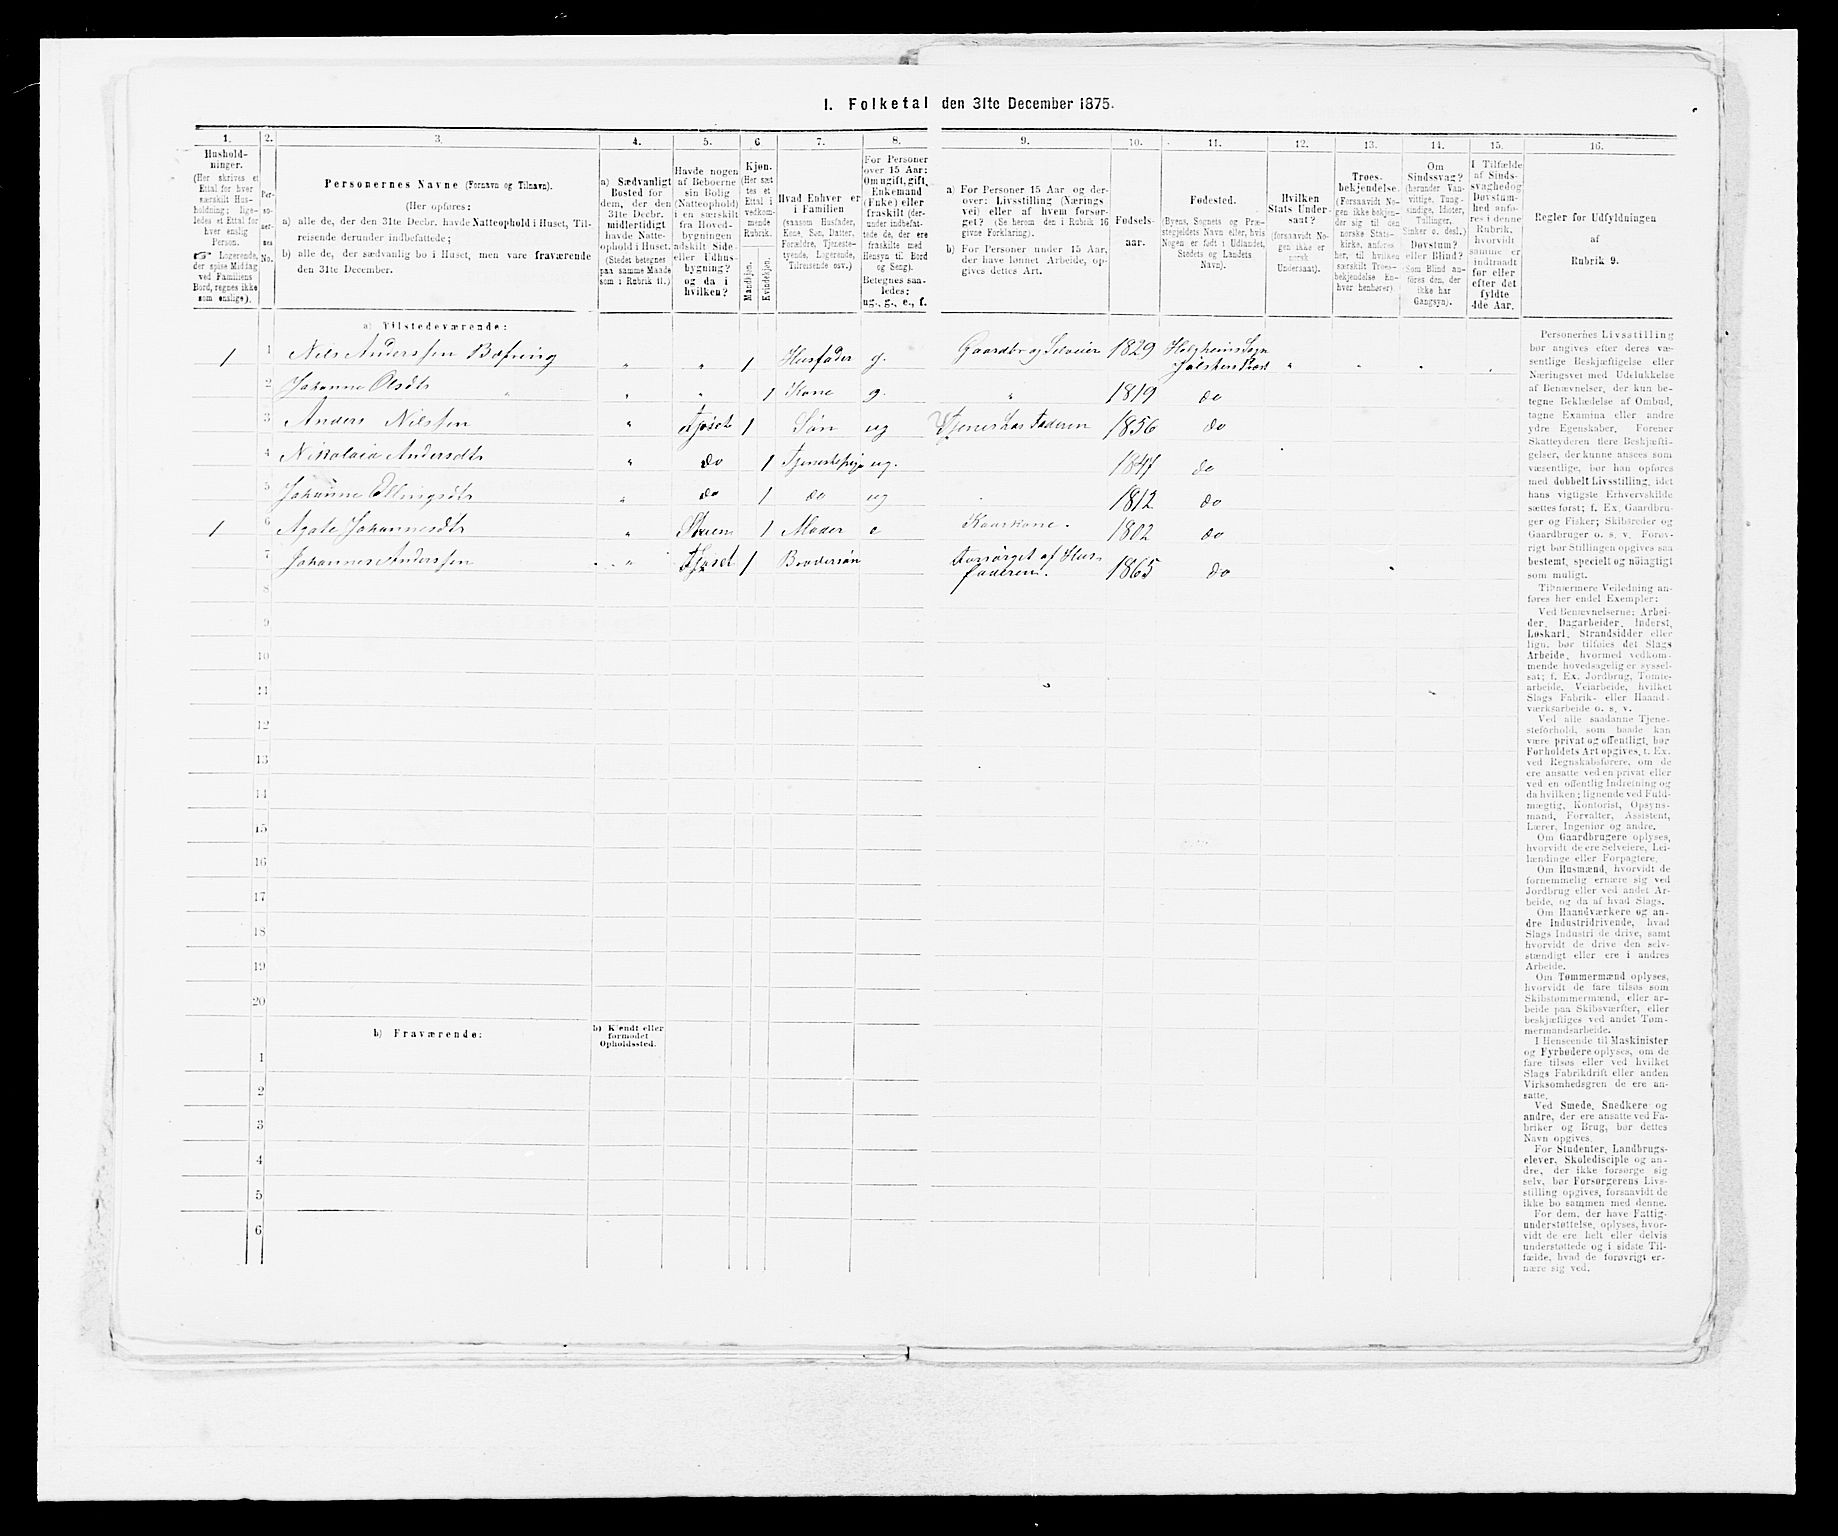 I. Folketal den 31te December 1875.
1.
Hushold-
ninger.
(Her skrives et
Ettal for hver
særskilt Hus-
holdning; lige-
ledes et Ettal for
hver enslig
Person.
☞ Logerende,
der spise Middag
ved Familiens
Bord, regnes ikke
som enslige).
2.
Per-
so-
ner-
nes
No.
3.
Personernes Navne (Fornavn og Tilnavn).
(Her opføres:
a) alle de, der den 31te Decbr. havde Natteophold i Huset, Til-
reisende derunder indbefattede;
b) alle de, der sædvanlig bo i Huset, men vare fraværende
den 31te December.
4.
a) Sædvanligt
Bosted for
dem, der den
31te Decbr.
midlertidigt
havde Natte-
ophold i Huset.
(Stedet betegnes
paa samme Maade
som i Rubrik 11.)
5.
Havde nogen
af Beboerne
sin Bolig
(Natteophold)
i en særskilt
fra Hoved-
bygningen
adskilt Side-
eller Udhus-
bygning?
og da i
hvilken?
6
Kjøn.
(Her sæt-
tes et
Ettal i
vedkom-
mende
Rubrik.
Mandkjøn.
Kvindekjøn.
7.
Hvad Enhver er
i Familien
(saasom Husfader,
Kone, Søn, Datter,
Forældre, Tjeneste-
tyende, Logerende,
Tilreisende osv.)
8.
For Personer
over 15 Aar:
Om ugift, gift,
Enkemand
(Enke) eller
fraskilt (der-
under indbefat-
tede de, der ere
fraskilte med
Hensyn til Bord
og Seng).
Betegnes saa-
ledes:
ug., g., e., f.
9.
a) For Personer 15 Aar og der-
over: Livsstilling (Nærings
vei) eller af hvem forsør-
get? (Se herom den i Rubrik 16
givne Forklaring).
b) For Personer under 15 Aar,
der have lønnet Arbeide, op-
gives dettes Art.
10.
Fødsels-
aar.
11.
Fødested.
(Byens, Sognets og Præ-
stegjeldets Navn eller, hvis
Nogen er født i Udlandet,
Stedets og Landets
Navn).
12.
Hvilken
Stats Under-
saat?
(forsaavidt No-
gen ikke er
norsk
Undersaat).
13.
Troes-
bekjendelse.
(Forsaavidt No-
gen ikke bekjen-
der sig til den
norske Stats-
kirke, anføres
her, til hvilken
særskilt Troes-
bekjendelse En-
hver henhører).
14.
Om
Sindssvag?
(herunder Van-
vittige, Tung-
sindige, Idioter,
Tullinger,
Sinker o. desl.)
Døvstum?
eller Blind?
(Som Blind an-
føres den, der
ikke har
Gangsyn).
15.
I Tilfælde
af Sinds-
svaghed og
Døvstum-
hed anfø-
res i denne
Rubrik,
hvorvidt
samme er
indtraadt
før eller
efter det
fyldte
4de Aar.
16.
Regler for Udfyldningen
af
Rubrik 9.
a) Tilstedeværende:
1 1 Nils Anderssen Bøfring " " 1 Husfader g. Gaardbr og Selveier 1829 Holgheims Sogn
Jølsters Præst " " " "
2 Johanne Olsdtr " " " 1 Kone g. " 1819 do
3 Anders Nilssen " Fjøset 1 Søn ug Tjener hos Faderen 1856 do
4 Nikolaia Andersdtr " do 1 Tjenestepige ug. 1847 do
5 Johanne Ellingsdtr " do 1 do ug 1812 do
1 6 Agate Johannesdtr " Stuen 1 Moder e Kaarkone. 1802 do
7 Johannes Anderssen " Fjøset 1 Brodersøn Forsørget af Hus-
faderen. 1865 do
8
9
10
11
12
13
14
15
16
17
18
19
20
b) Fraværende:
b) Kjendt eller
formodet
Opholdssted.
1
2
3
4
5
6
Personernes Livsstilling
bør angives efter deres væ-
sentlige Beskjæftigelse eller
Næringsvei med Udelukkelse
af Benævnelser, der kun be-
tegne Beklædelse af Ombud,
tagne Examina eller andre
ydre Egenskaber. Forener
Skatteyderen flere Beskjæfti-
gelser, der kunne ansees som
væsentlige, bør han opføres
med dobbelt Livsstilling, idet
hans vigtigste Erhvervskilde
sættes først; f. Ex. Gaardbru-
ger og Fisker; Skibsreder og
Gaardbruger o. s. v. Forøv-
rigt bør Stillingen opgives saa
bestemt, specielt og nöiagtigt
som muligt.
Til nærmere Veiledning an-
føres her endel Exempler:
Ved Benævnelserne: Arbei-
der, Dagarbeider, Inderst,
Løskarl, Strandsidder eller
lign. bør tilføies det Slags
Arbeide, hvormed vedkom-
mende hovedsagelig er syssel-
sat; f. Ex. Jordbrug, Tomte-
arbeide, Veiarbeide, hvilket
Slags Fabrik- eller Haand-
værksarbeide o. s. v.
Ved alle saadanne Tjene-
steforhold, som baade kan
være privat og offentligt, bør
Forholdets Art opgives, f. Ex.
ved Regnskabsførere, om de
ere ansatte ved en privat eller
ved en offentlig Indretning og
da hvilken; lignende ved Fuld-
mægtig, Kontorist, Opsyns-
mand, Forvalter, Assistent,
Lærer, Ingeniør og andre.
Om Gaardbrugere oplyses,
hvorvidt de ere Selveiere, Lei-
lændinge eller Forpagtere.
Om Husmænd, hvorvidt de
fornemmelig ernære sig ved
Jordbrug eller ved andet Ar-
beide, og da af hvad Slags.
Om Haandværkere og an-
dre Industridrivende, hvad
Slags Industri de drive, samt
hvorvidt de drive den selv-
stændigt eller ere i andres
Arbeide.
Om Tømmermænd oplyses,
hvorvidt de fare tilsøs som
Skibstømmermænd, eller ar-
beide paa Skibsværfter, eller
beskjæftiges ved andet Tøm-
mermandsarbeide.
I Henseende til Maskinister
og Fyrbødere oplyses, om de
fare tilsøs eller ved hvilket
Slags Fabrikdrift eller anden
Virksomhedsgren de ere an-
satte.
Ved Smede, Snedkere og
andre, der ere ansatte ved Fa-
briker og Brug, bør dettes
Navn opgives.
For Studenter, Landbrugs-
elever, Skoledisciple og an-
dre, der ikke forsørge sig
selv, bør Forsørgerens Livs-
stilling opgives, forsaavidt de
ikke bo sammen med denne.
For dem, der have Fattig-
understøttelse, oplyses, hvor-
vidt de ere helt eller delvis
understøttede og i sidste Til-
fælde, hvad de forøvrigt er-
nære sig ved.